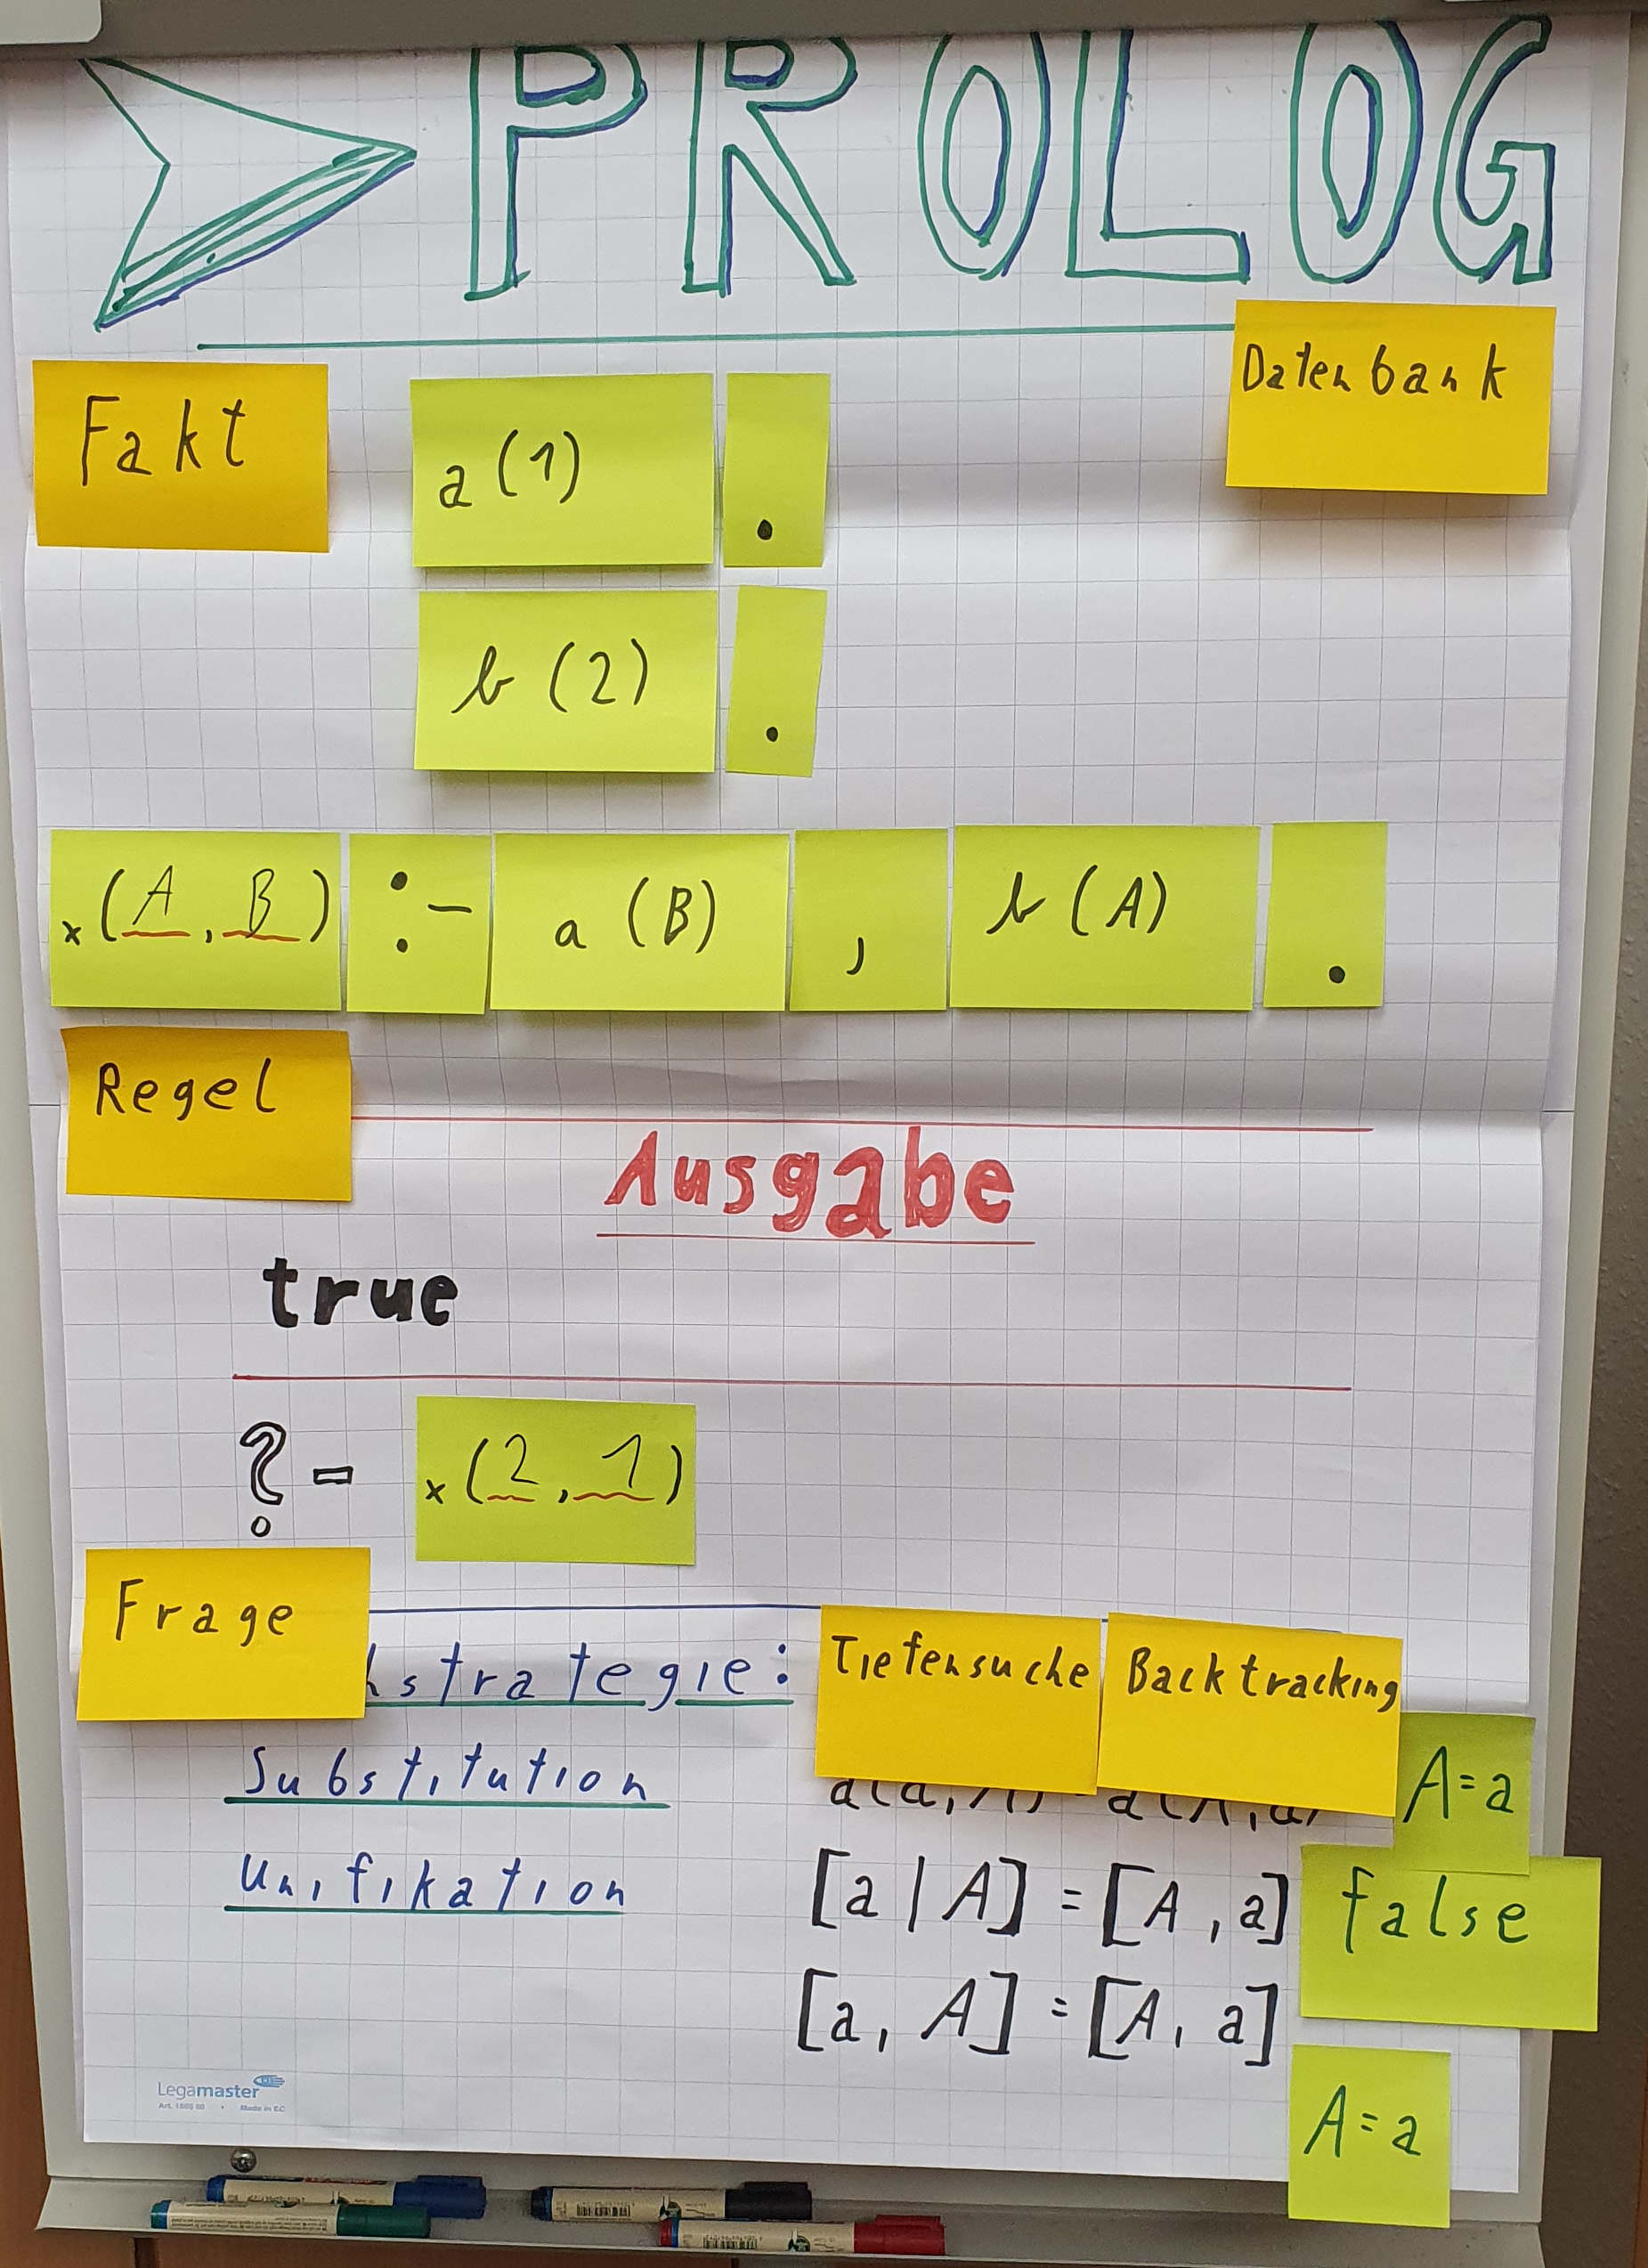 PROLOG
Datenbank
Fakt
a(1) .
b(2) .
x(A, B) :- a(B) , b(A) .
Regel
Ausgabe
true
?- x(2, 1)
Frage
hstrategie: Tiefensuche Backtracking
Substitution
a(a, A) = a(A, a) A=a
Unifikation
[a | A] = [A, a] false
[a, A] = [A, a]
A=a
Legamaster
Made in EC